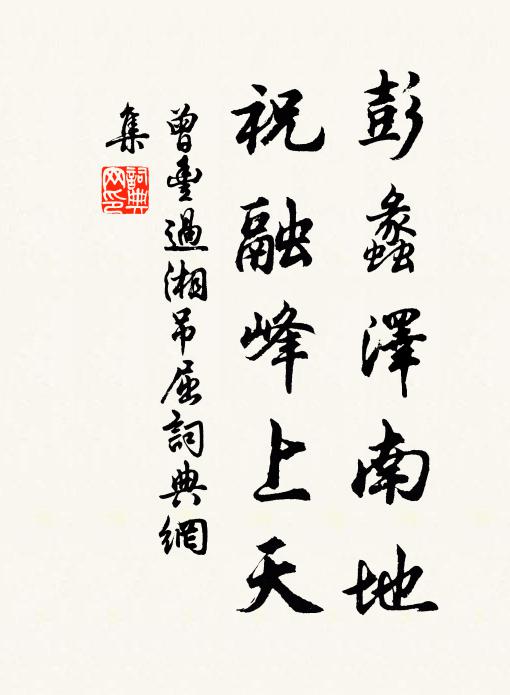 彭蠡澤南地
祝融峰上天
曾豊過湘吊屈詞典網
集
詞典
网印